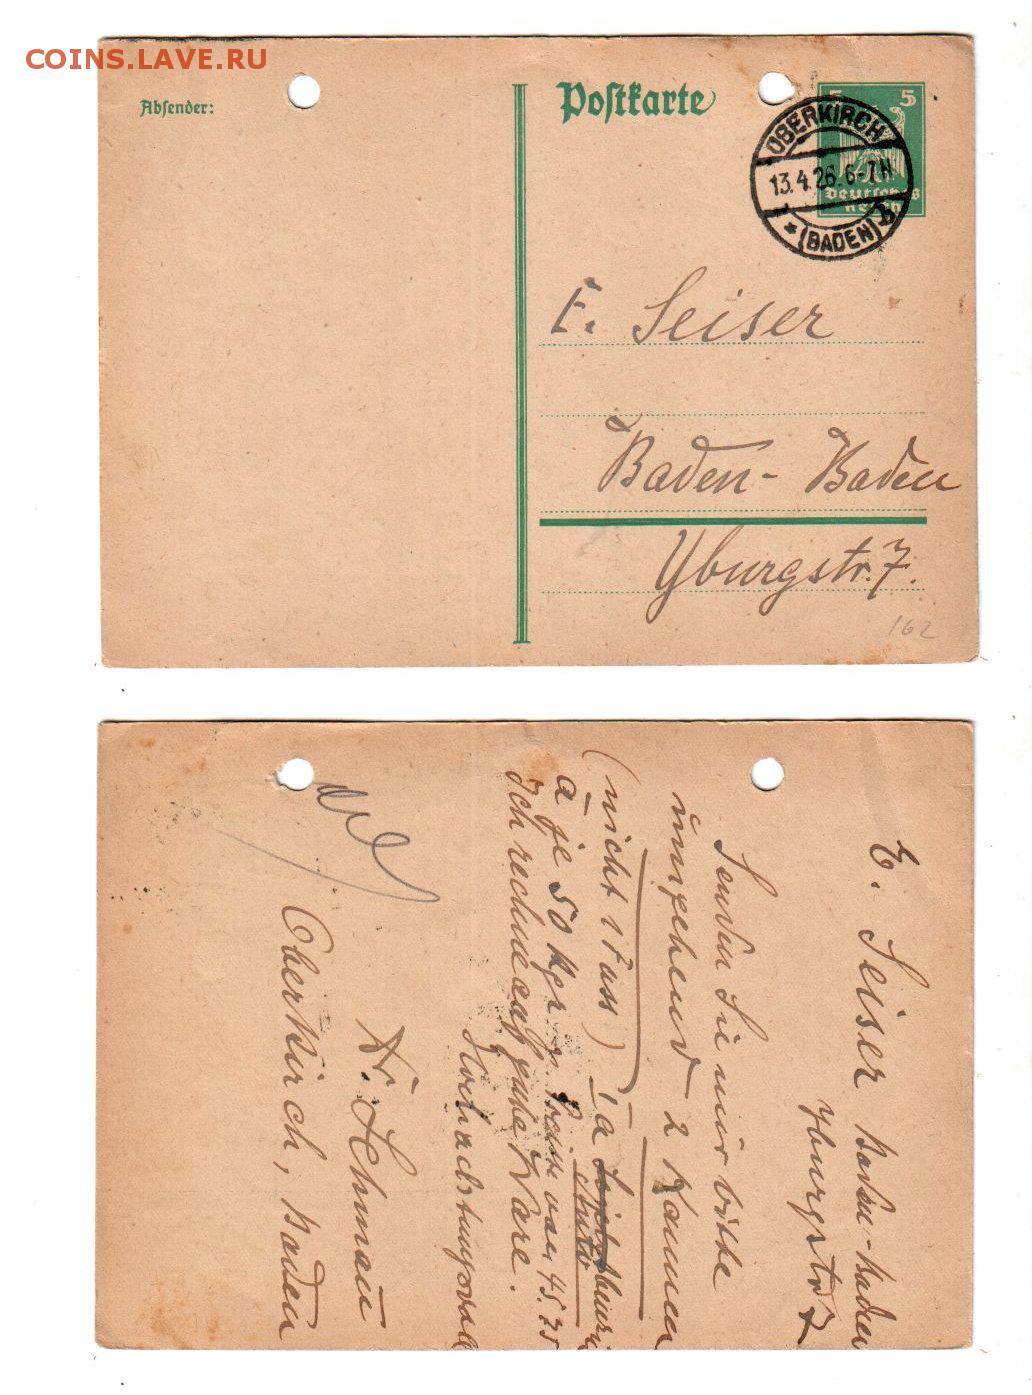 COINS.LAVE.RU
Absender:
Postkarte
5 5
Deutsches
Reich
OBERKIRCH
13.4.26.6-7N
1 * (BADEN) b
E. Seiser
Baden-Baden
Yburgstr. 7.
162
E. Seiser Baden-Baden
Yburgstr 7
Senden Sie mir bitte
umgehend 2 Kannen
(nicht 1 Fass) Ia
Auto
a je 50 kgr z. Preise von 45.25
Ich rechne auf gute Ware.
Hochachtungsvoll
Fr.
Oberkirch, Baden